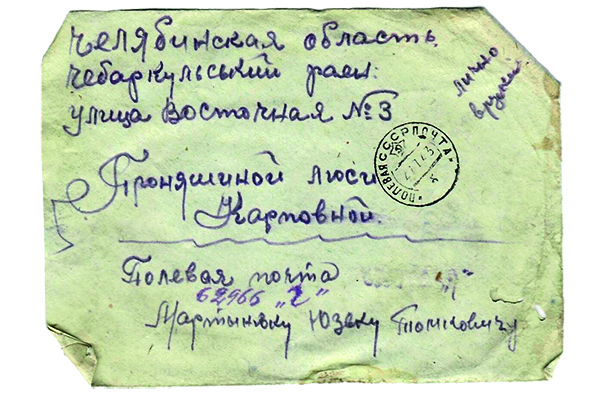 Челябинская область
Чебаркульський раен.
улица Восточная №3
лично
вручить
ПОЛЕВАЯ СССР ПОЧТА
Проняшиной люси
Карповной.
Полевая почта
62966 "Г"
Мартынюку Юзеку Томковичу